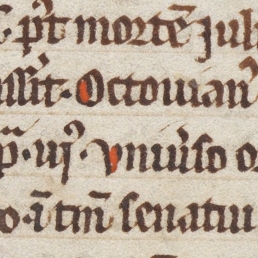 p̄t mortē Juli
ss̄it. Octouian᾽
ꝑ. uı᾽. vniũso o
o ī tm̄ senatu